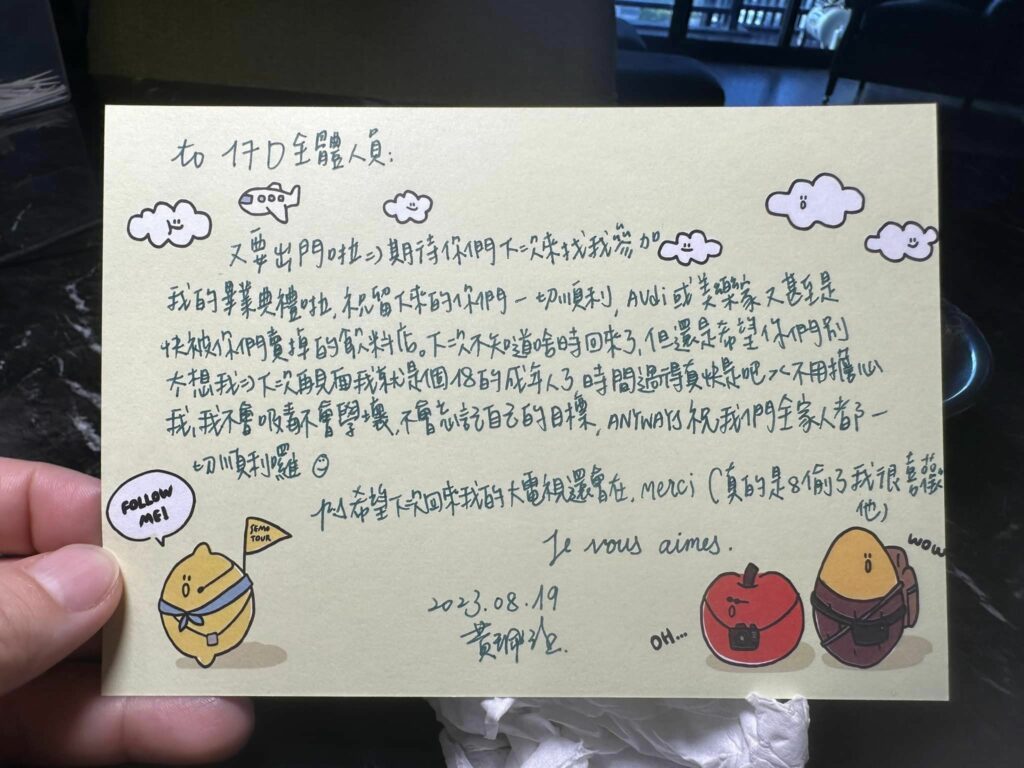 to 17D全體人員:
又要出門啦=)期待你們下次來找我參加
我的畢業典禮啦,祝留下來的你們一切順利,AUdi或美樂家又甚至是
快被你們賣掉的飲料店。下次不知道啥時回來了,但還是希望你們別
太想我=)下次再見面我就是個18的成年人了時間過得真快是吧^^不用擔心
我,我不會吸毒不會學壞,不會忘記自己的目標,ANYWAYS祝我們全家人都一
切順利囉
FOLLOW
ME!
SEMO
TOUR
PS希望下次回來我的大電視還會在,merci(真的是8偷了我很喜歡
他)
Je vous aimes.
WOW
2023.08.19
OH...
黃